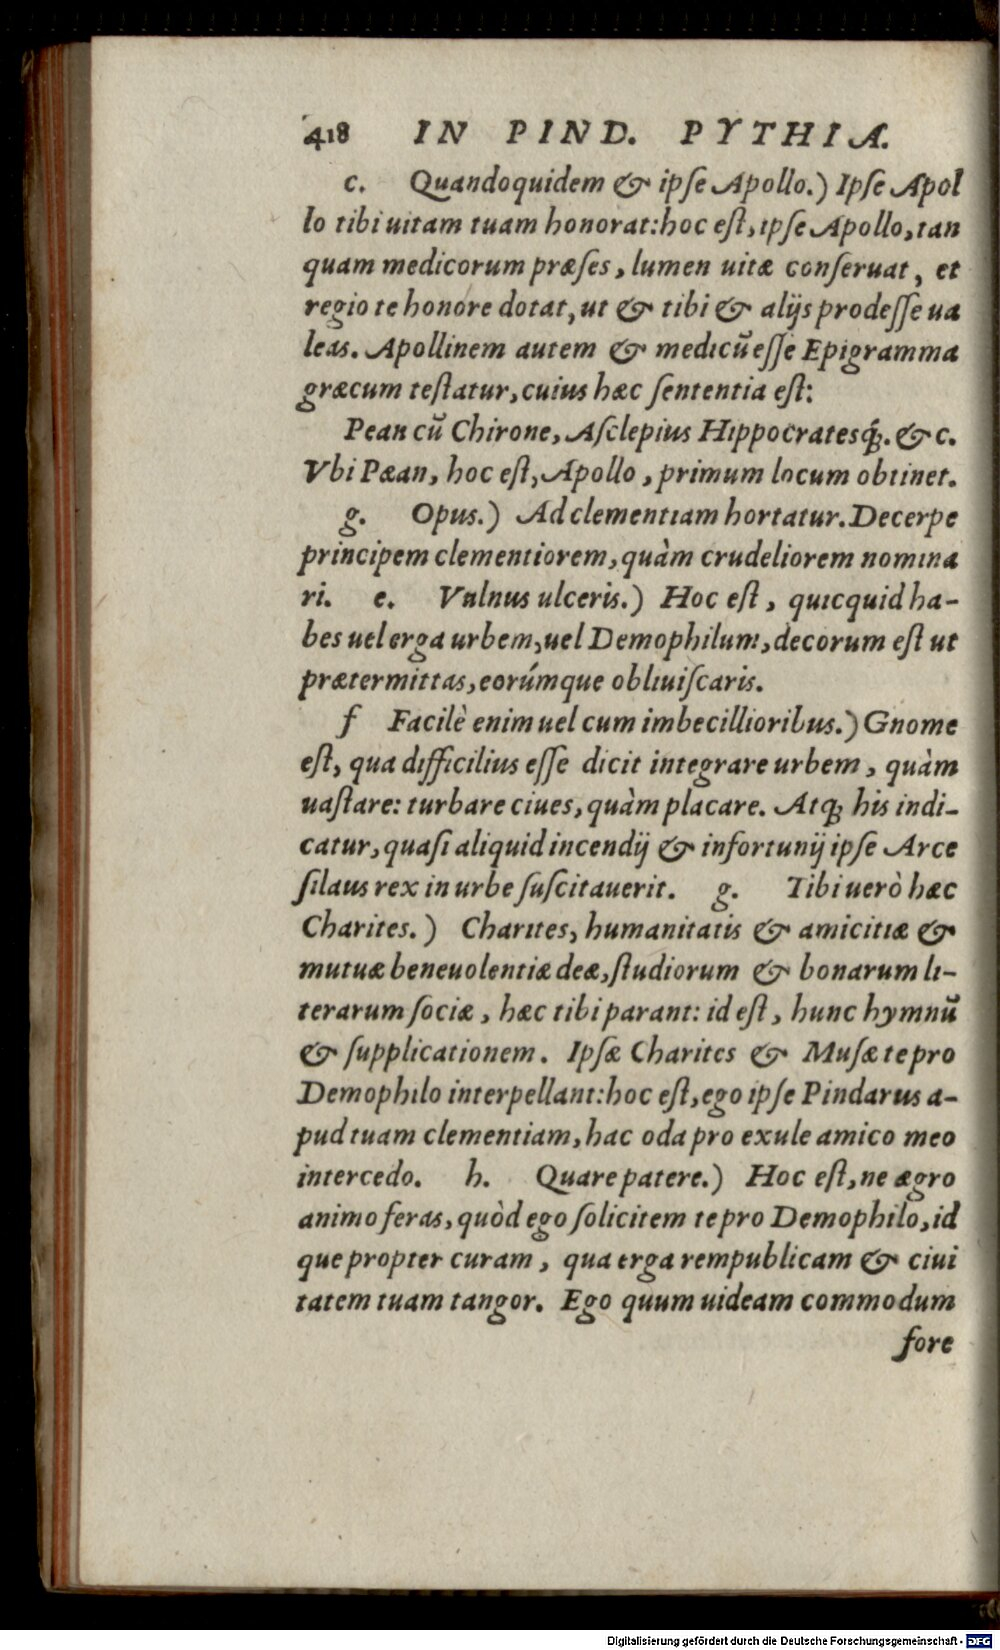 418 IN PIND. PYTHIA.
c. Quandoquidem & ipſe Apollo.) Ipſe Apol
lo tibi uitam tuam honorat: hoc eſt, ipſe Apollo, tan
quam medicorum præſes, lumen uitæ conſeruat, et
regio te honore dotat, ut & tibi & alijs prodeſſe ua
leas. Apollinem autem & medicũ eſſe Epigramma
græcum teſtatur, cuius hæc ſententia eſt:
Pean cũ Chirone, Aſclepius Hippocratesq́;. & c.
Vbi Pæan, hoc eſt, Apollo, primum locum obtinet.
g. Opus.) Ad clementiam hortatur. Decerpe
principem clementiorem, quàm crudeliorem nomina
ri. e. Vulnus ulceris.) Hoc eſt, quicquid ha-
bes uel erga urbem, uel Demophilum, decorum eſt ut
prætermittas, eorúmque obliuiſcaris.
f Facilè enim uel cum imbecillioribus.) Gnome
eſt, qua difficilius eſſe dicit integrare urbem, quàm
uaſtare: turbare ciues, quàm placare. Atq; his indi-
catur, quaſi aliquid incendij & infortunij ipſe Arce
ſilaus rex in urbe ſuſcitauerit. g. Tibi uerò hæc
Charites.) Charites, humanitatis & amicitiæ &
mutuæ beneuolentiæ deæ, ſtudiorum & bonarum li-
terarum ſociæ, hæc tibi parant: id eſt, hunc hymnũ
& ſupplicationem. Ipſæ Charites & Muſæ te pro
Demophilo interpellant: hoc eſt, ego ipſe Pindarus a-
pud tuam clementiam, hac oda pro exule amico meo
intercedo. h. Quare patere.) Hoc eſt, ne ægro
animo feras, quòd ego ſolicitem te pro Demophilo, id
que propter curam, qua erga rempublicam & ciui
tatem tuam tangor. Ego quum uideam commodum
fore
Digitalisierung gefördert durch die Deutsche Forschungsgemeinschaft - DFG